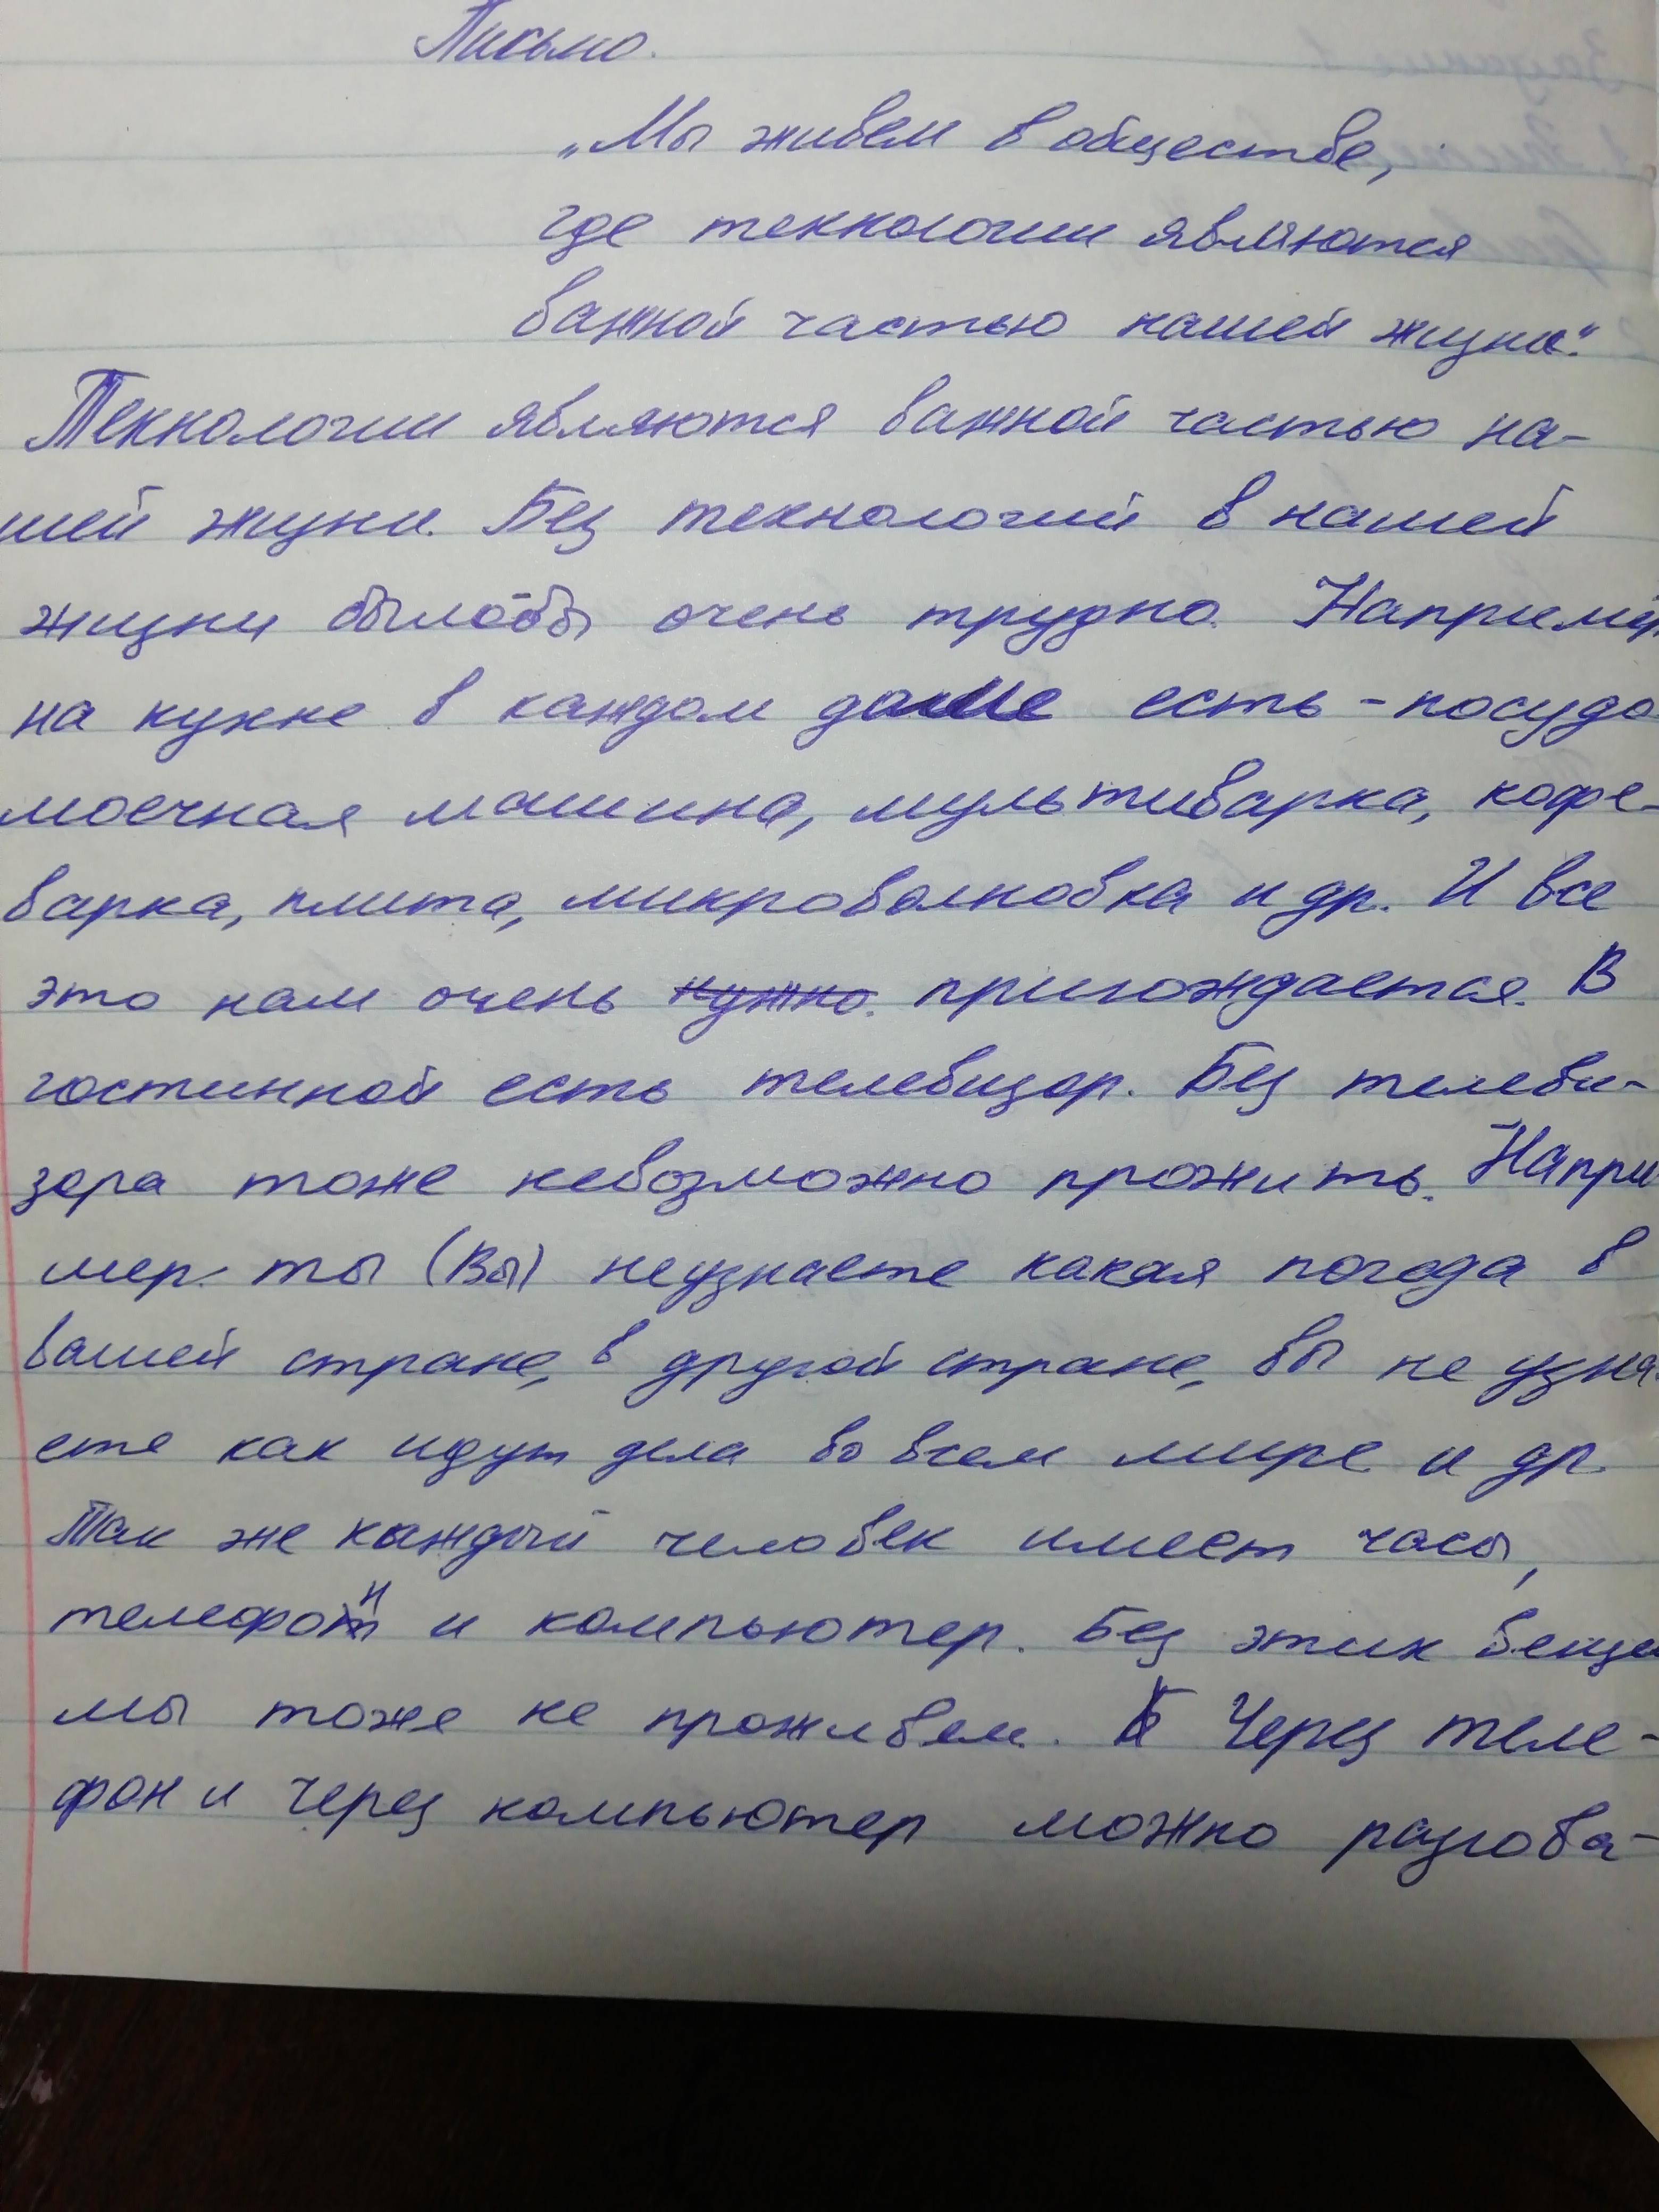 Письмо.
„Мы живем в обществе,
где технологии являются
важной частью нашей жизни".
Технологии являются важной частью на-
шей жизни. Без технологий в нашей
жизни было-бы очень трудно. Например
на кухне в каждом доме есть - посудо
моечная машина, мультиварка, кофе-
варка, плита, микроволновка и др. И все
это нам очень нужно. пригождается. В
гостинной есть телевизор. Без телеви-
зора тоже невозможно прожить. Напри
мер. ты (Вы) неузнаете какая погода в
вашей стране, в другой стране, вы не узна-
ете как идут дела во всем мире и др.
Так же каждый человек имеет часы,
телефон и компьютер. Без этих вещей
мы тоже не проживем. Через теле-
фон и через компьютер можно разгова-